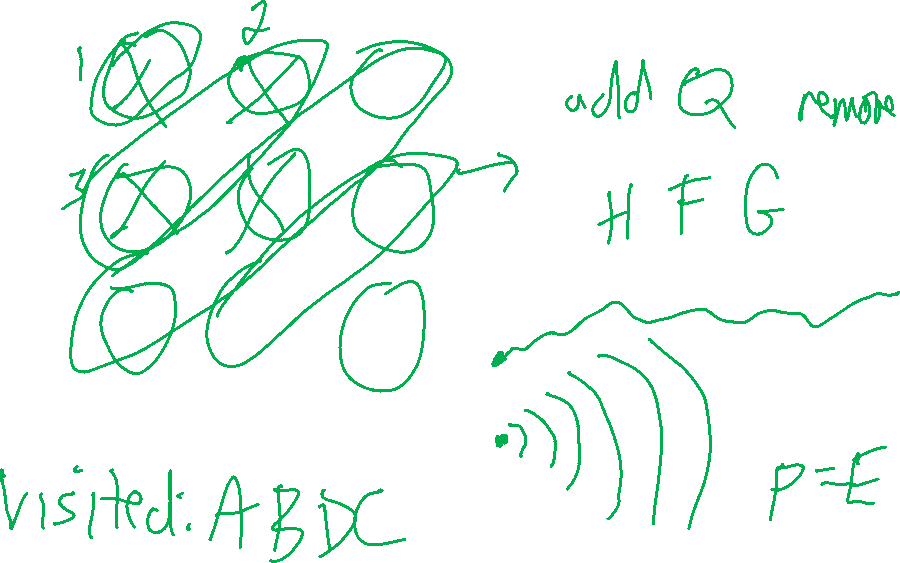 1 2
3
add Q remove
H F G
P=E
Visited: A B D C